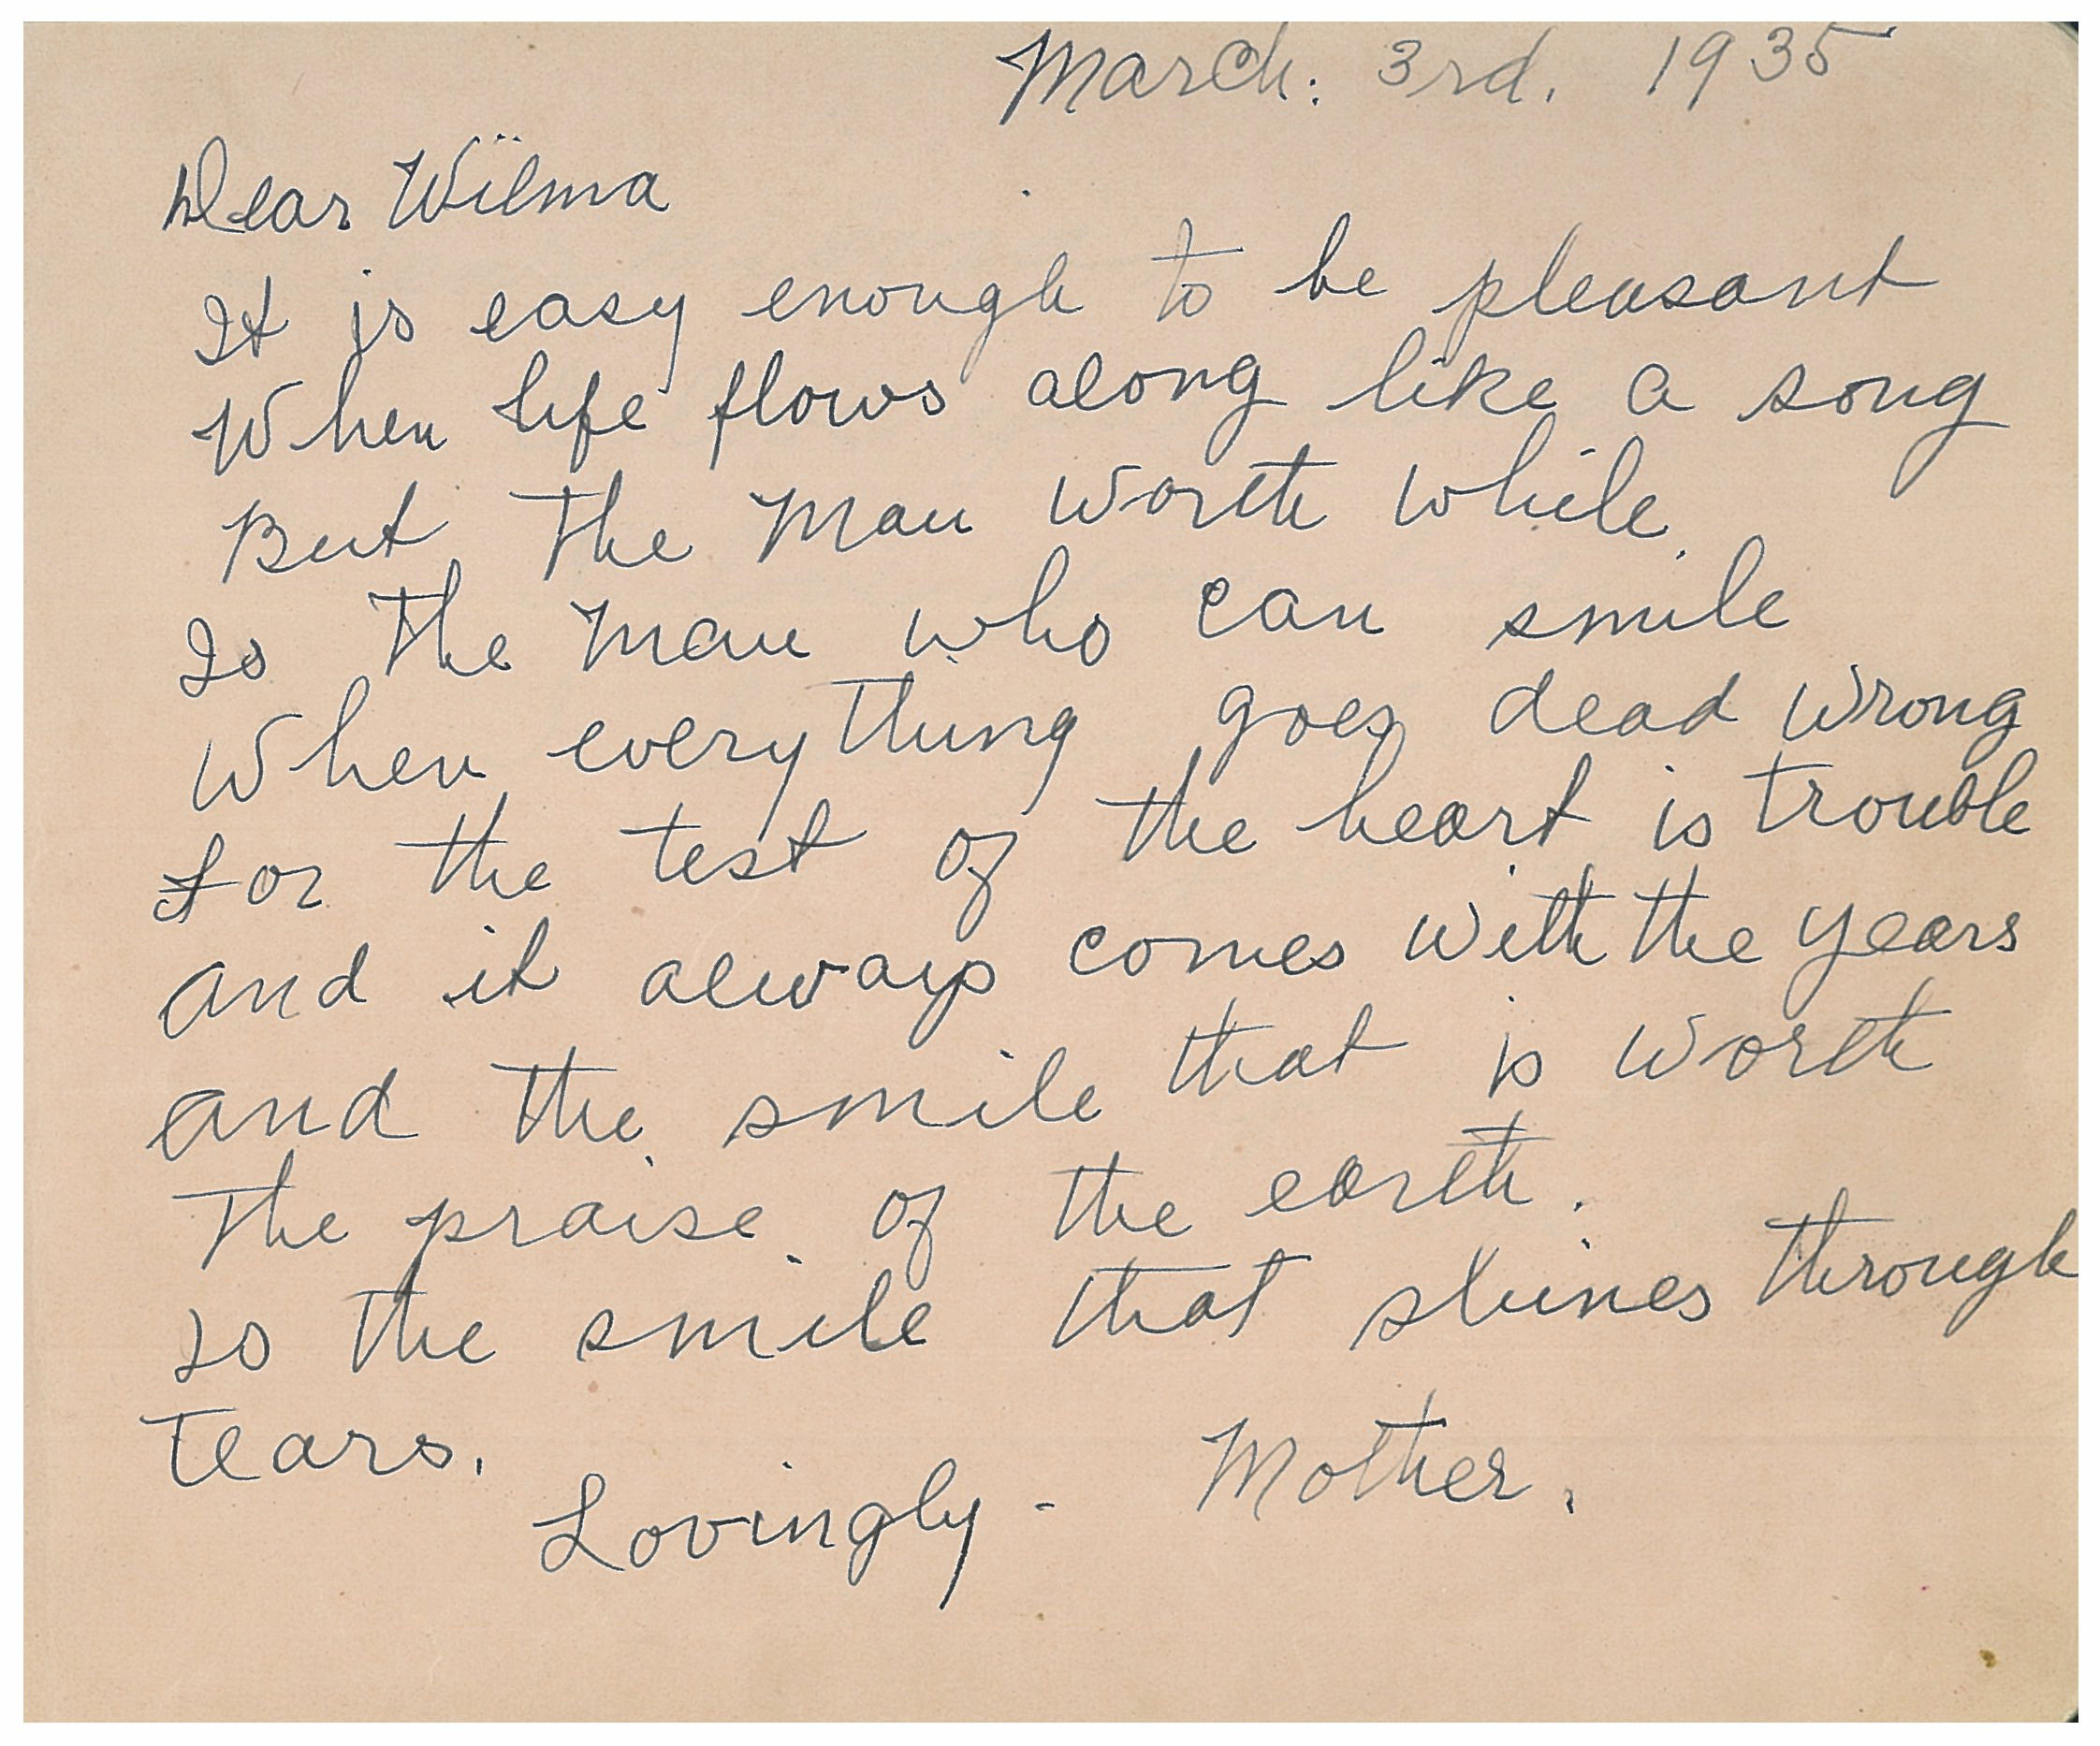 March: 3rd. 1935
Dear Wilma
It is easy enough to be pleasant
When life flows along like a song
But the man worth while.
Is the man who can smile
When everything goes dead wrong
for the test of the heart is trouble
and it always comes with the years
and the smile that is worth
The praise of the earth.
Is the smile that shines through
Tears.
Lovingly - Mother.